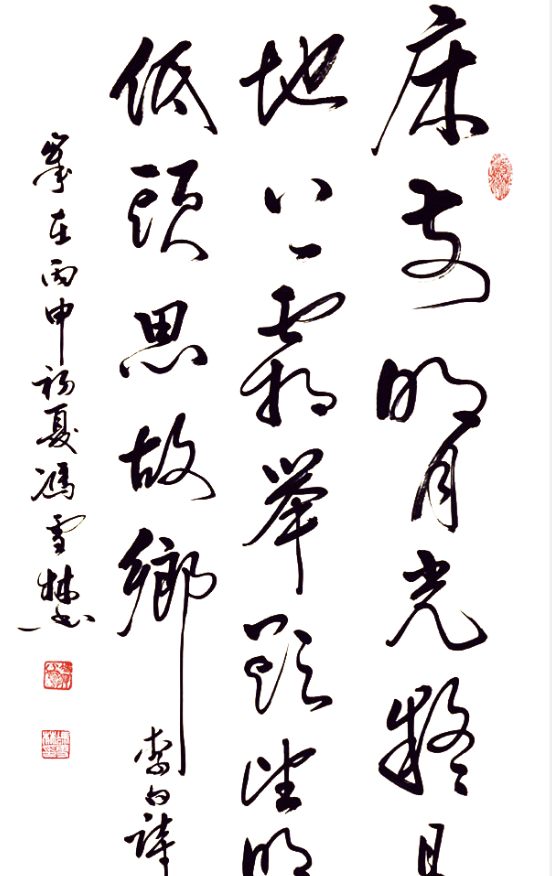 床前明月光疑
地上霜举頭望明
低頭思故鄉 李白詩
歲在丙申初夏馮雪林书